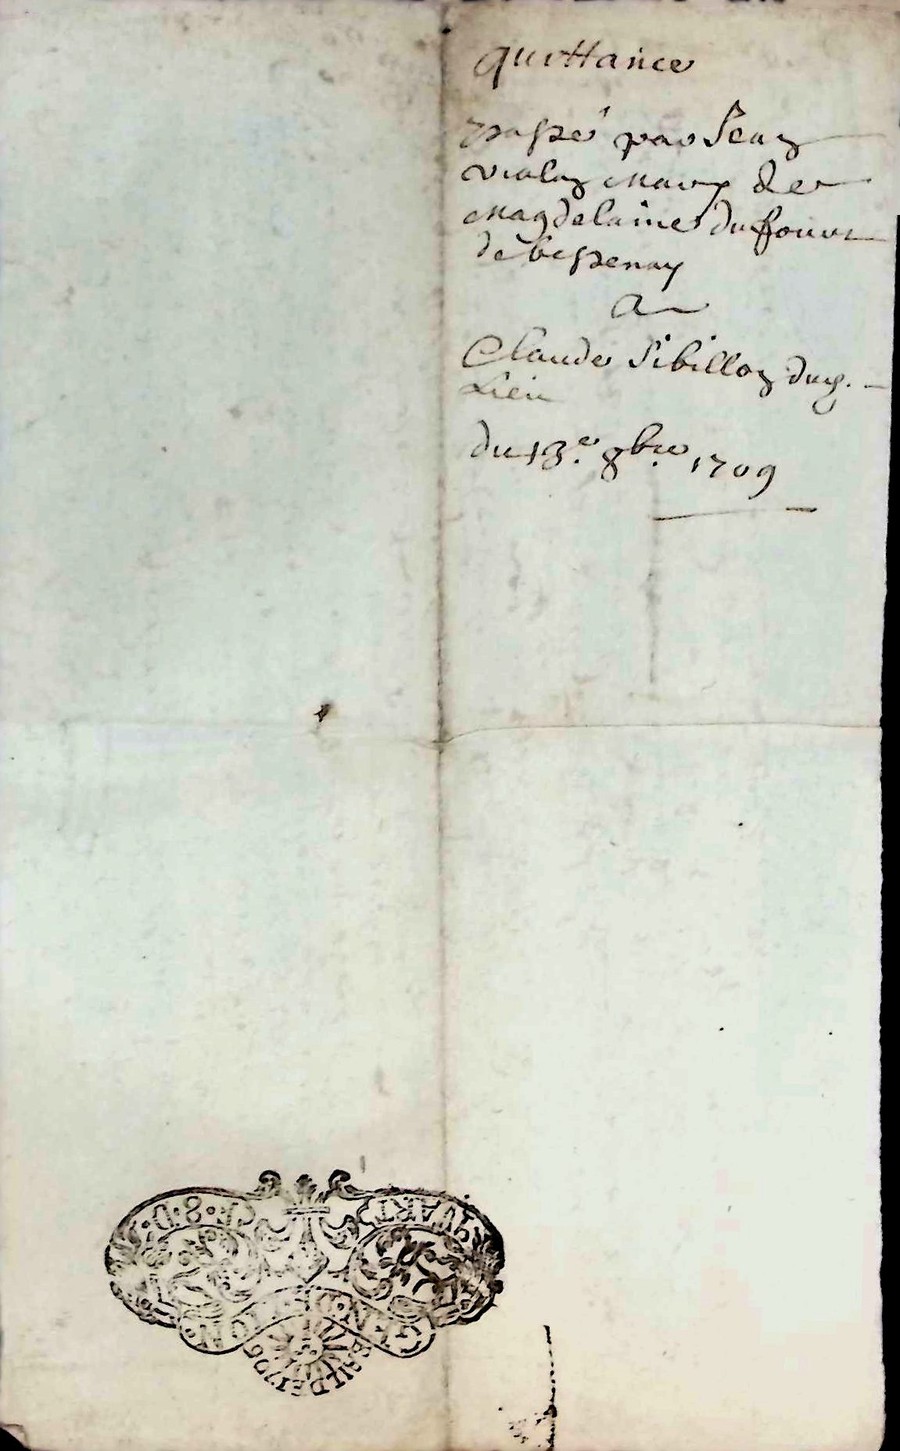 quittance
passé par Jean
violay mary de
Magdelaine du four
de bessenay
A
Claude Sibillon dud.
Lieu
du 13.e 8bre 1709
QUART
8·D
GEN
LION
1706